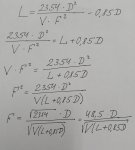 L = 2354 · D² / V · F² - 0,85 D
2354 · D² / V · F² = L + 0,85 D
V · F² = 2354 · D² / L + 0,85 D
F² = 2354 · D² / V(L+0,85D)
F = √2354 · D / √V(L+0,85D) = 48,5 · D / √V(L+0,85D)